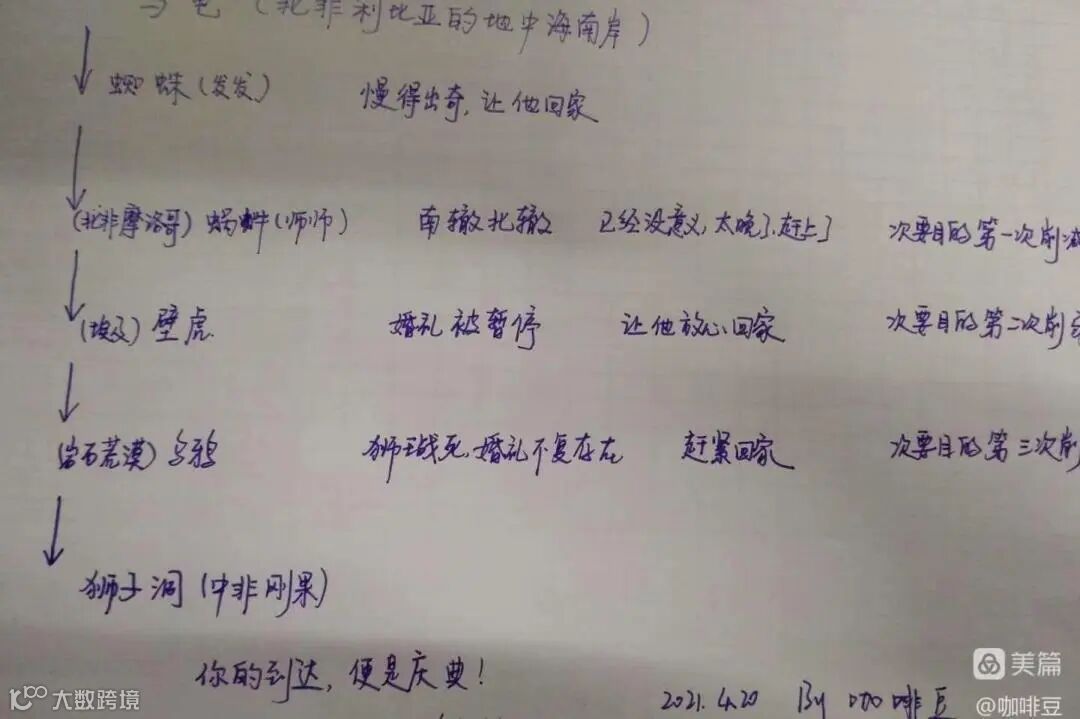 (北非利比亚的地中海南岸)
蜘蛛(发发) 慢得出奇,让他回家
(北非摩洛哥)蜗牛(师师) 南辙北辙 已经没意义,太晚了,赶上了 次要目的第一次削减
(埃及)壁虎. 婚礼被暂停 让他放心回家 次要目的第二次削
(岩石荒漠)乌鸦 狮王战死,婚礼不复存在 赶紧回家 次要目的第三次削
狮子洞(中非刚果)
你的到达,便是庆典!
2021.4.20 By 咖啡豆
美篇
@咖啡豆
大数跨境